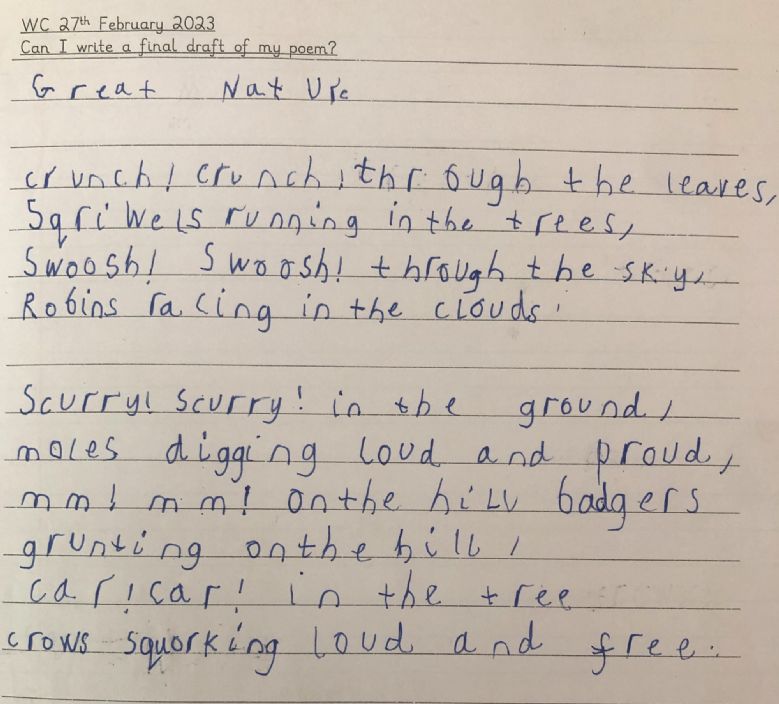 WC 27th February 2023
Can I write a final draft of my poem?
Great Nature
crunch! crunch! through the leaves,
Sqriwels running in the trees,
Swoosh! Swoosh! through the sky,
Robins racing in the clouds.
Scurry! Scurry! in the ground,
moles digging loud and proud,
mm! mm! on the hill badgers
grunting on the hill,
car! car! in the tree
crows squorking loud and free.